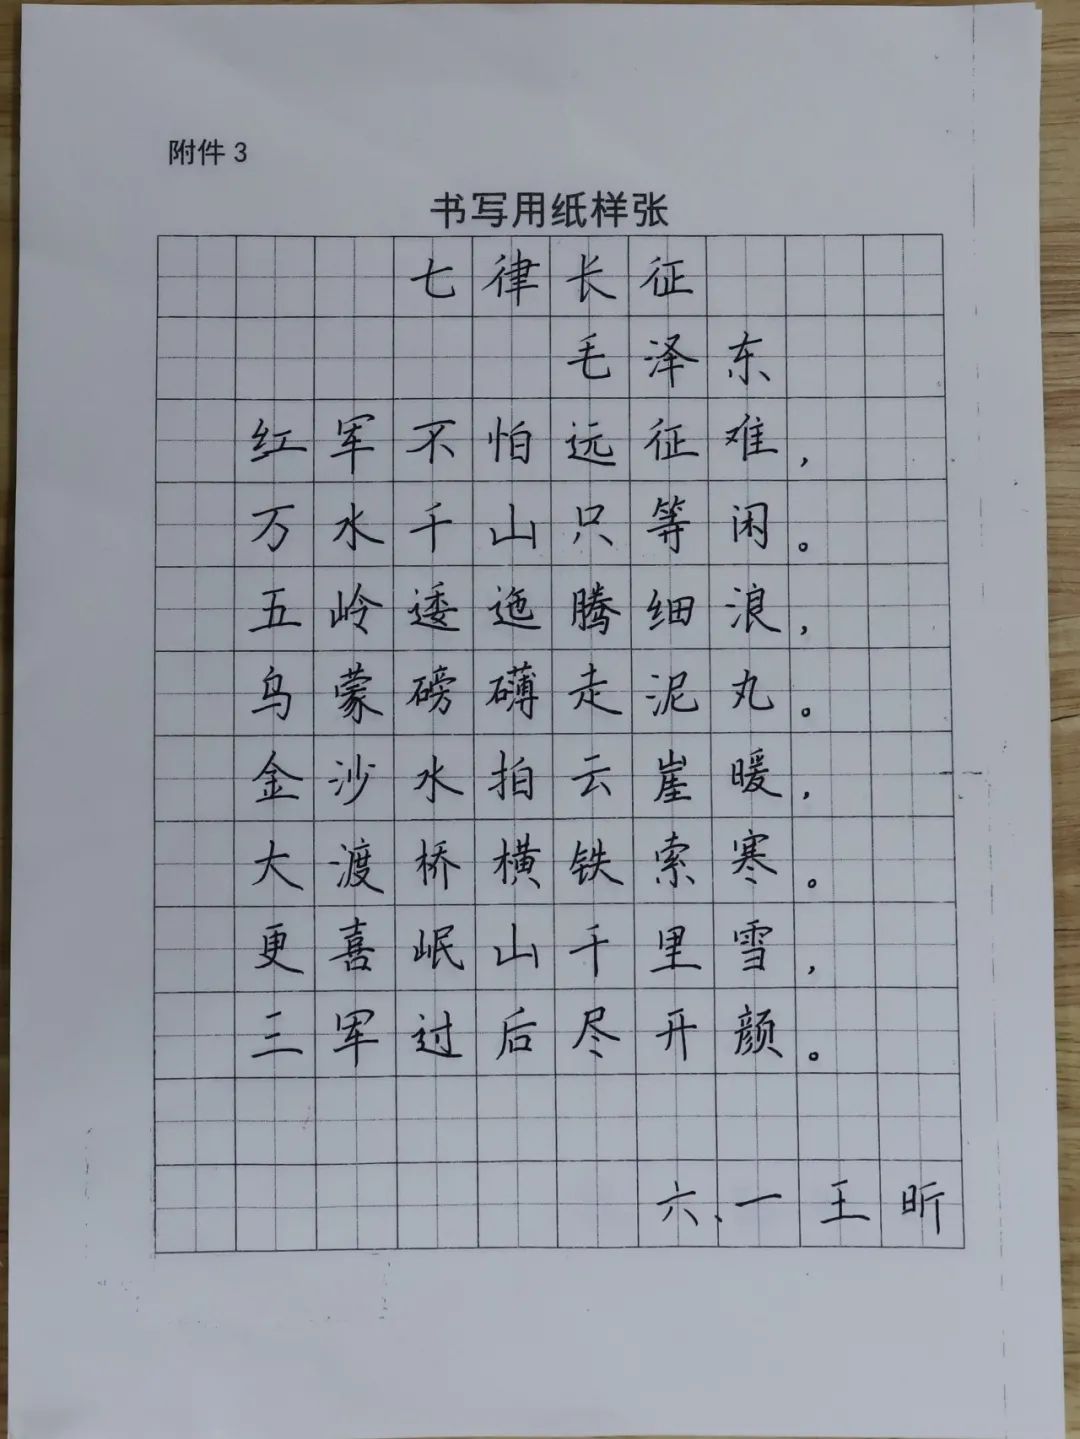 附件 3
书写用纸样张
七律长征
毛泽东
红军不怕远征难，
万水千山只等闲。
五岭逶迤腾细浪，
乌蒙磅礴走泥丸。
金沙水拍云崖暖，
大渡桥横铁索寒。
更喜岷山千里雪，
三军过后尽开颜。
六、一王昕